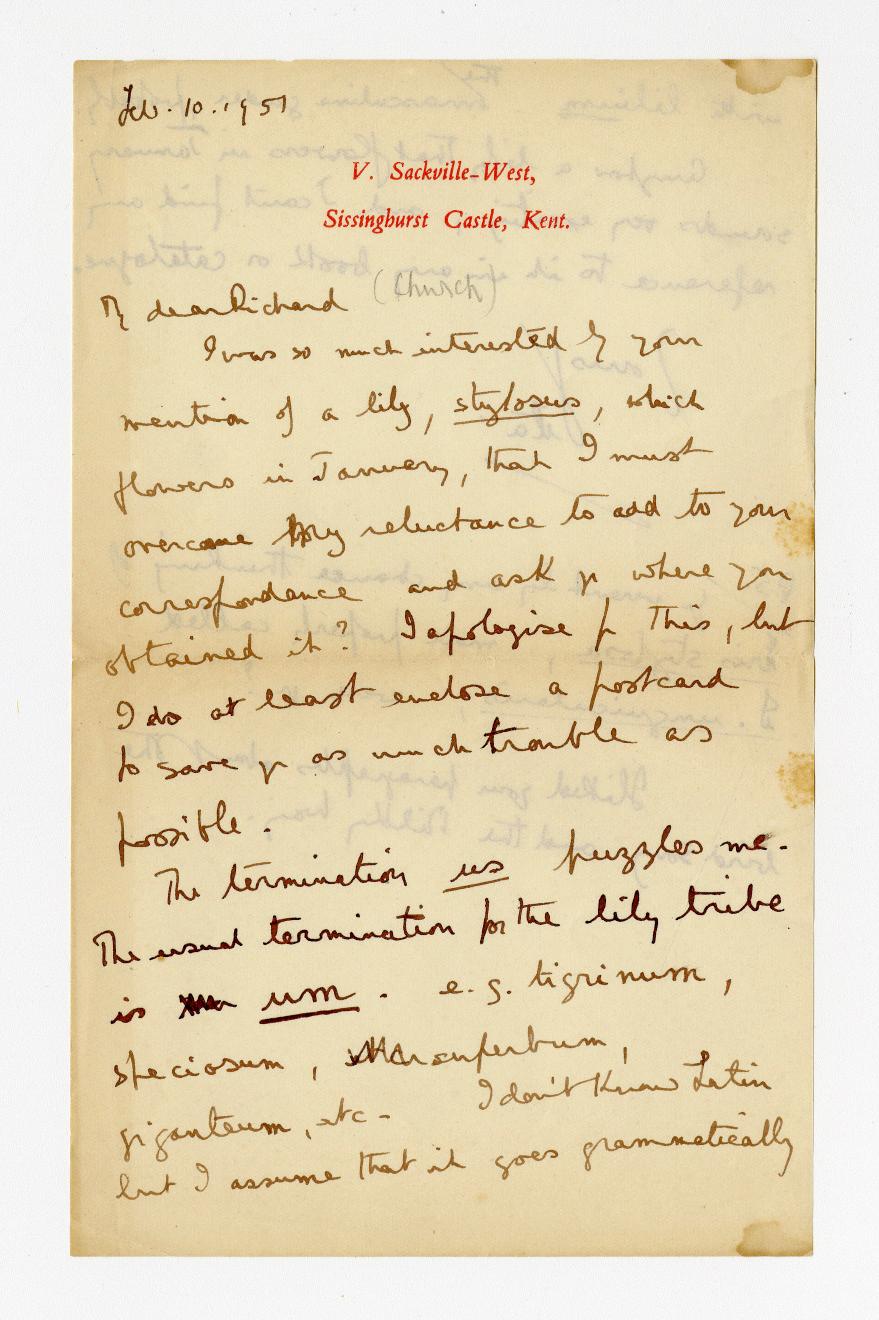 Feb. 10. 1951
V. Sackville-West,
Sissinghurst Castle, Kent.
My dear Richard (Church)
I was so much interested by your
mention of a lily, stylosus, which
flowers in January, that I must
overcome my reluctance to add to your
correspondence and ask yr where you
obtained it? I apologise fr this, but
I do at least enclose a postcard
to save yr as much trouble as
possible.
The termination us puzzles me.
The usual termination for the lily tribe
is um. e.g. tigrinum,
speciosum, superbum,
giganteum, etc. I don't know Latin
but I assume that it goes grammatically